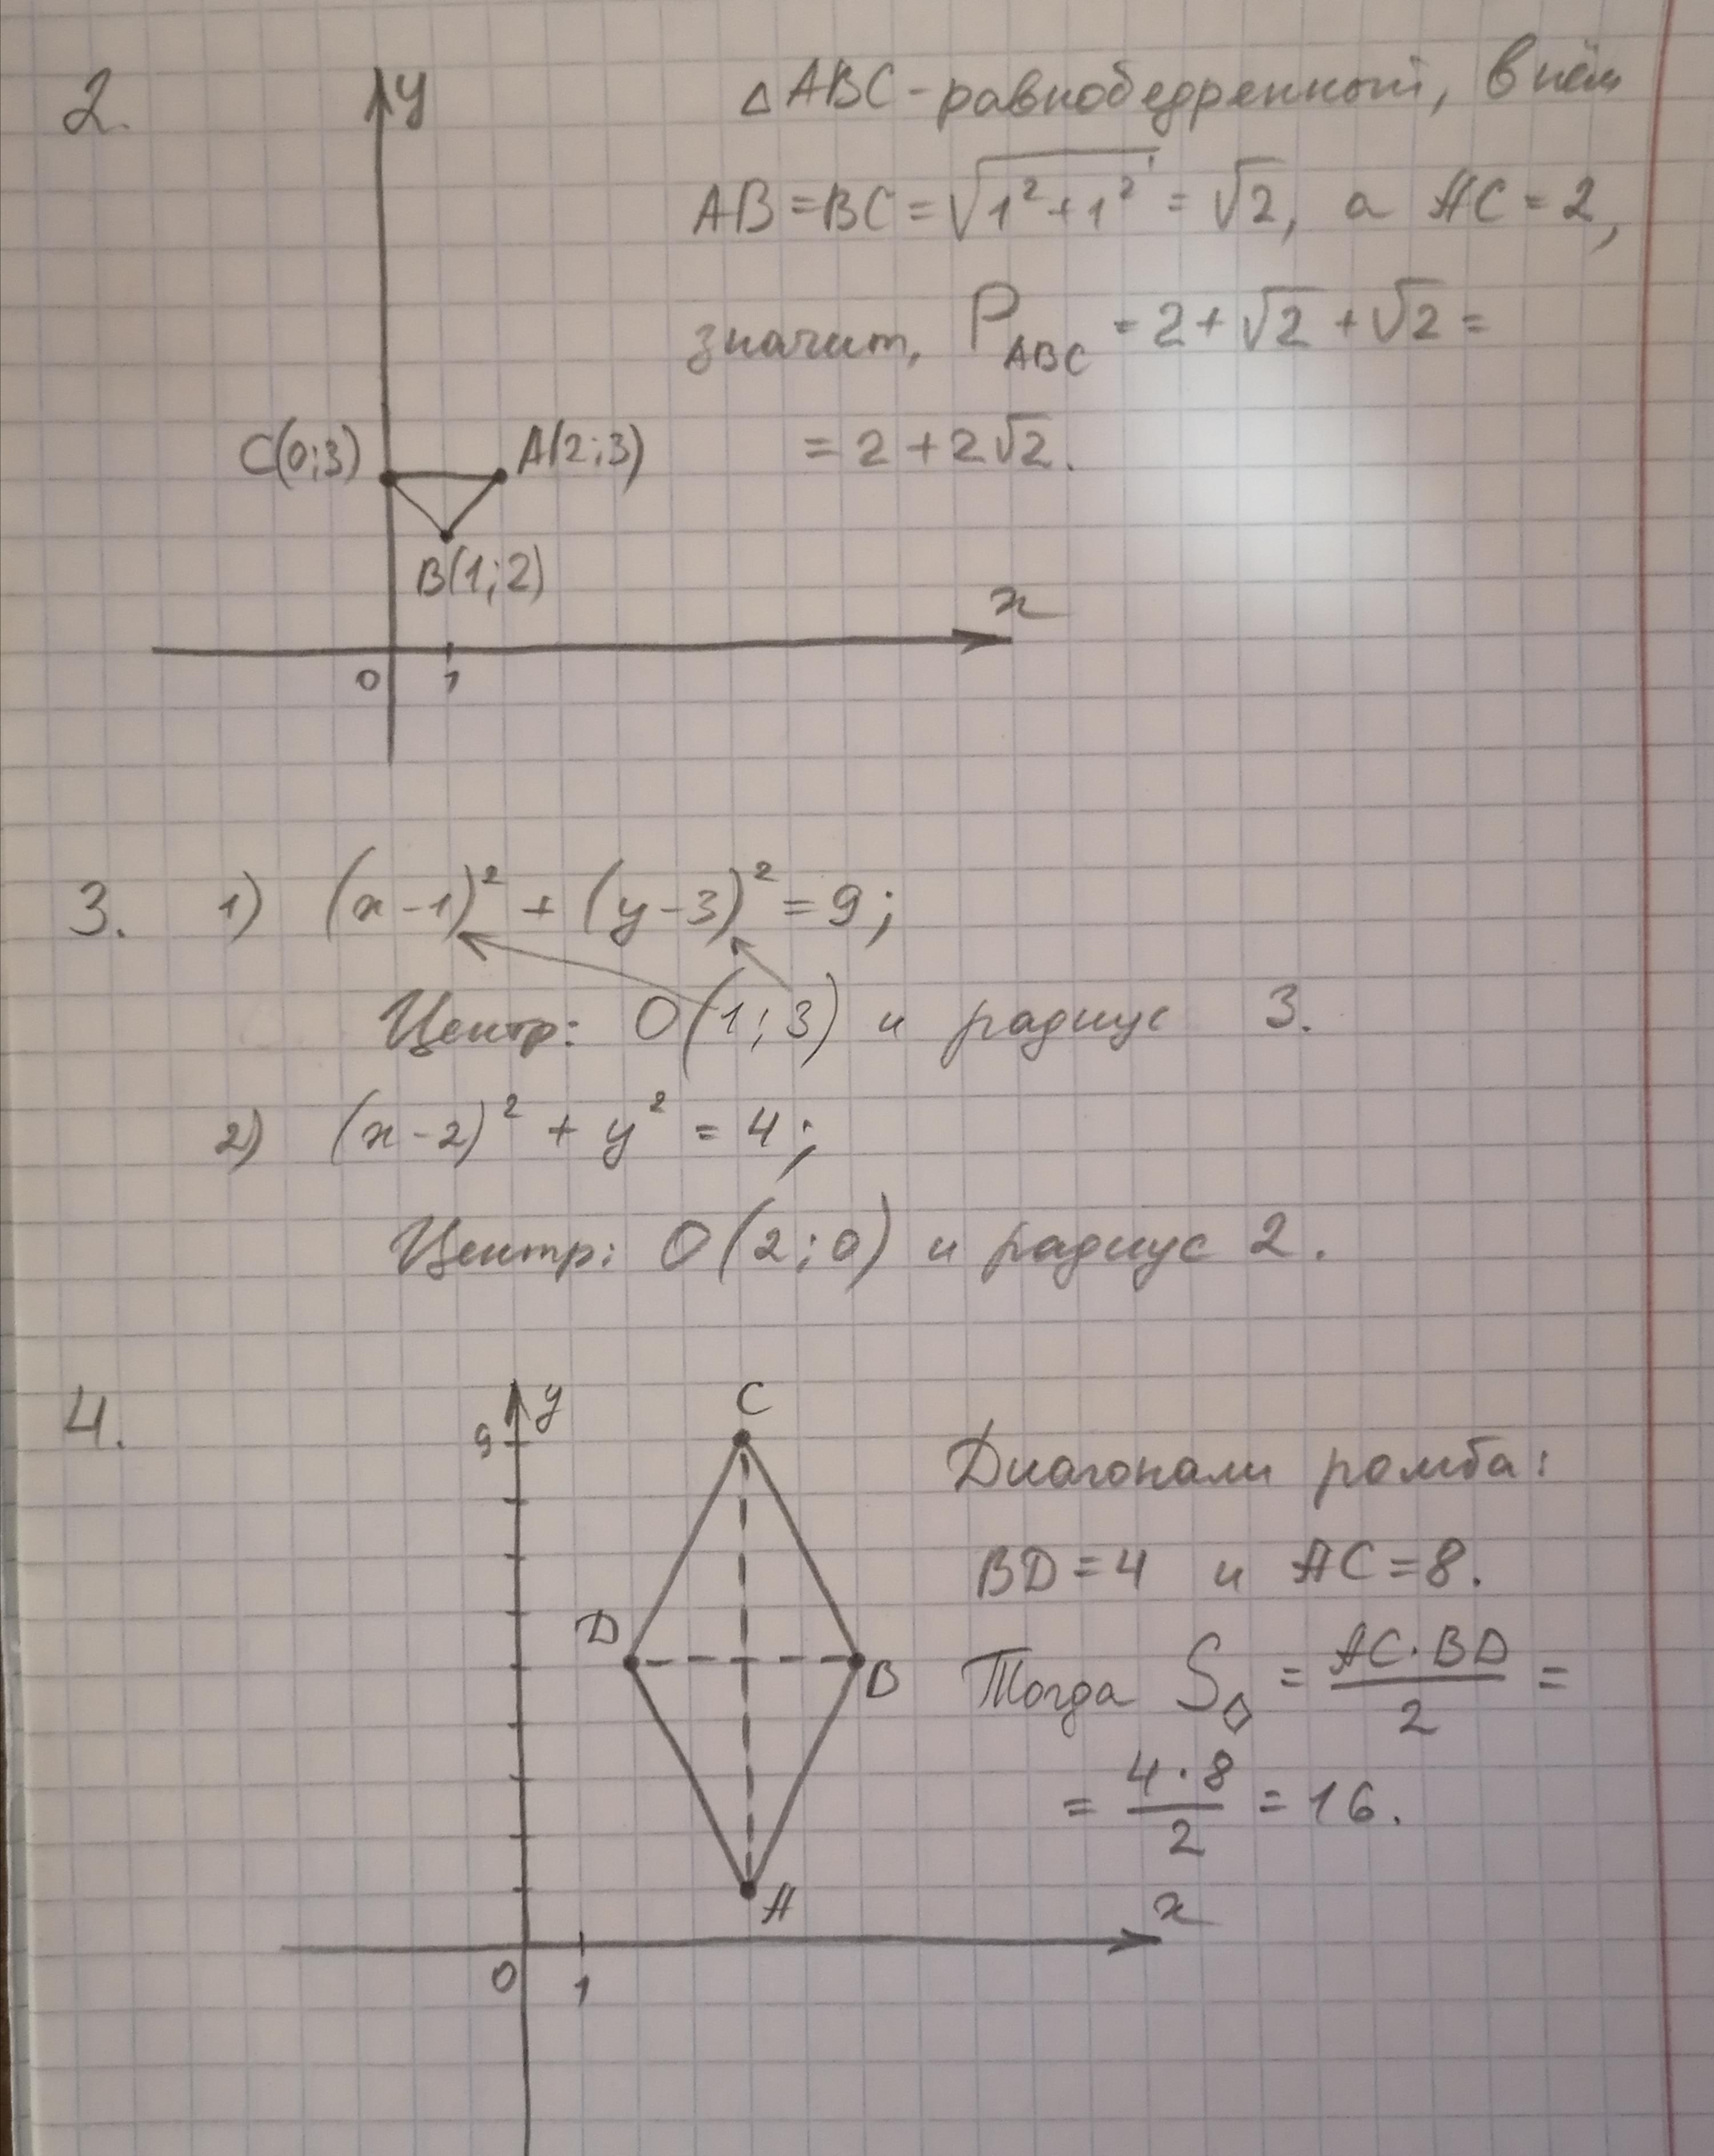 2.
y
△ABC - равнобедренный, в нём
AB = BC = √(1² + 1²) = √2, а AC = 2,
значит, P_ABC = 2 + √2 + √2 =
= 2 + 2√2.
C(0;3)
A(2;3)
B(1;2)
x
0 1
3. 1) (x-1)² + (y-3)² = 9;
Центр: O(1;3) и радиус 3.
2) (x-2)² + y² = 4;
Центр: O(2;0) и радиус 2.
4.
y
9
C
Диагонали ромба:
BD = 4 и AC = 8.
D
B
Тогда S◊ = AC·BD/2 =
= 4·8/2 = 16.
A
x
0 1